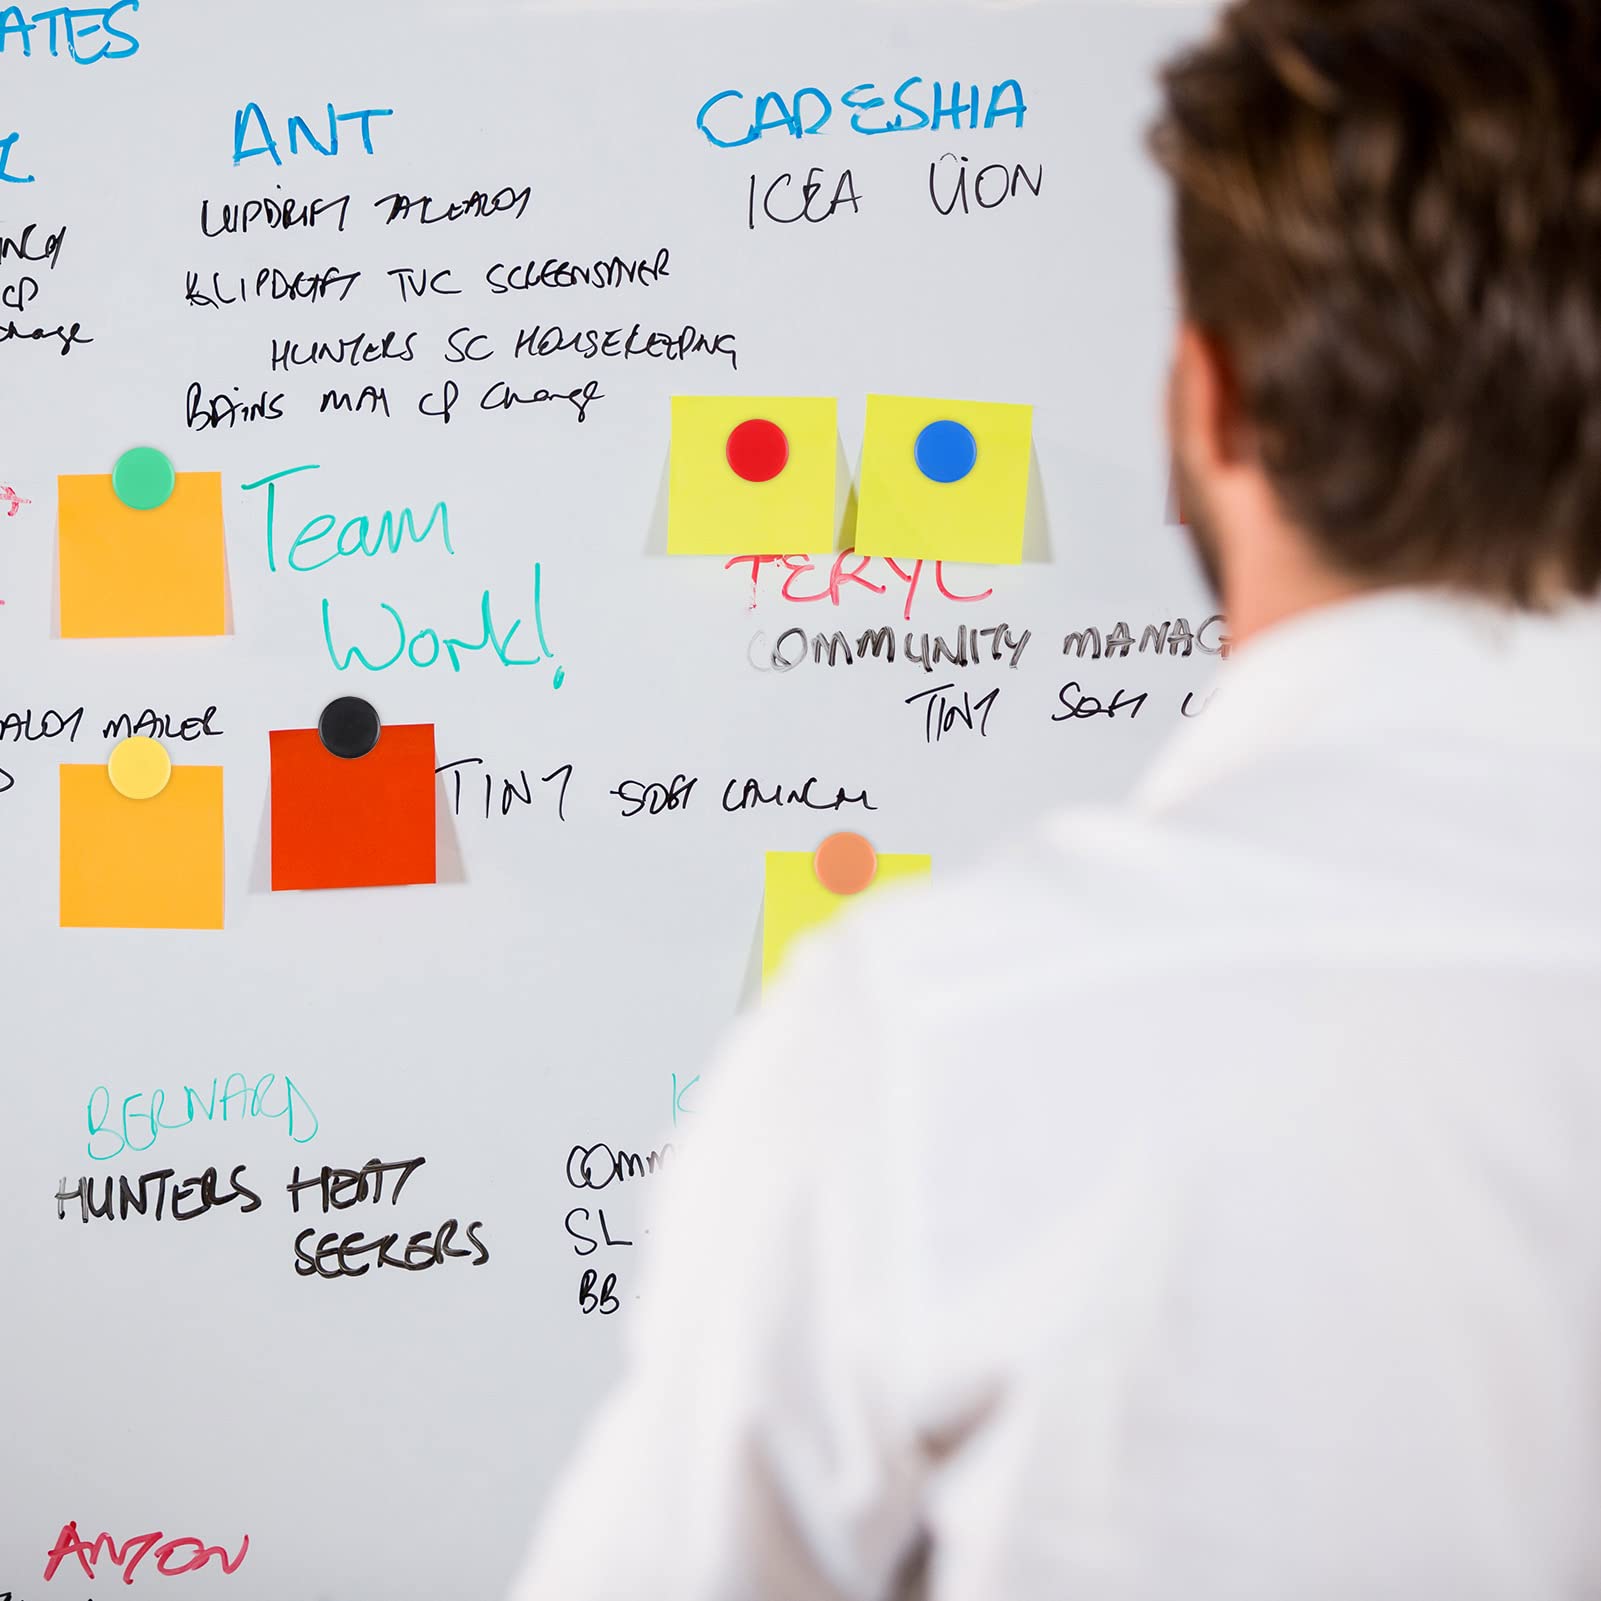 ATES
ANT
CADESHIA
ICEA
KLIPDRIFT TVC SCREENSAVER
HUNTERS SC HOUSEKEEPING
BAINS MAY CP Change
change
CP
Team
Work!
TERYL
COMMUNITY MANAG
TINY SOFT
MAILER
TINY SOFT LAUNCH
BERNARD
K
HUNTERS HEAT
SEEKERS
COMM
SL
BB
ANTON